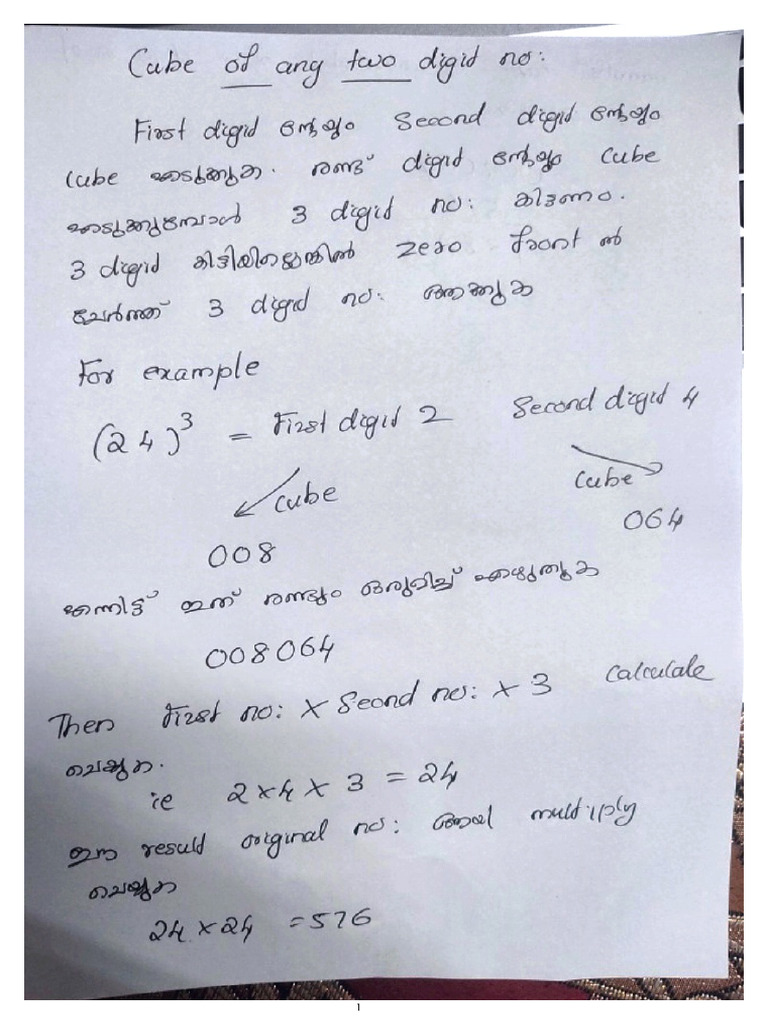 Cube of any two digid no:
First digid ന്റേയും Second digid ന്റേയും
Cube എടുക്കുക. രണ്ട് digid ന്റേയും Cube
എടുക്കുമ്പോൾ 3 digid no: കിട്ടണം.
3 digid കിട്ടിയില്ലെങ്കിൽ zero front ൽ
ചേർത്ത് 3 digid no: ആക്കുക
For example
(24)³ = First digid 2 Second digid 4
Cube Cube
008 064
എന്നിട്ട് ഇത് രണ്ടും ഒരുമിച്ച് എഴുതുക
008064
Then First no: x Seond no: x 3 Calculate
ചെയ്യുക.
ie 2x4x3 = 24
ഈ result original no: ആയി multiply
ചെയ്യുക
24 x 24 = 576
1